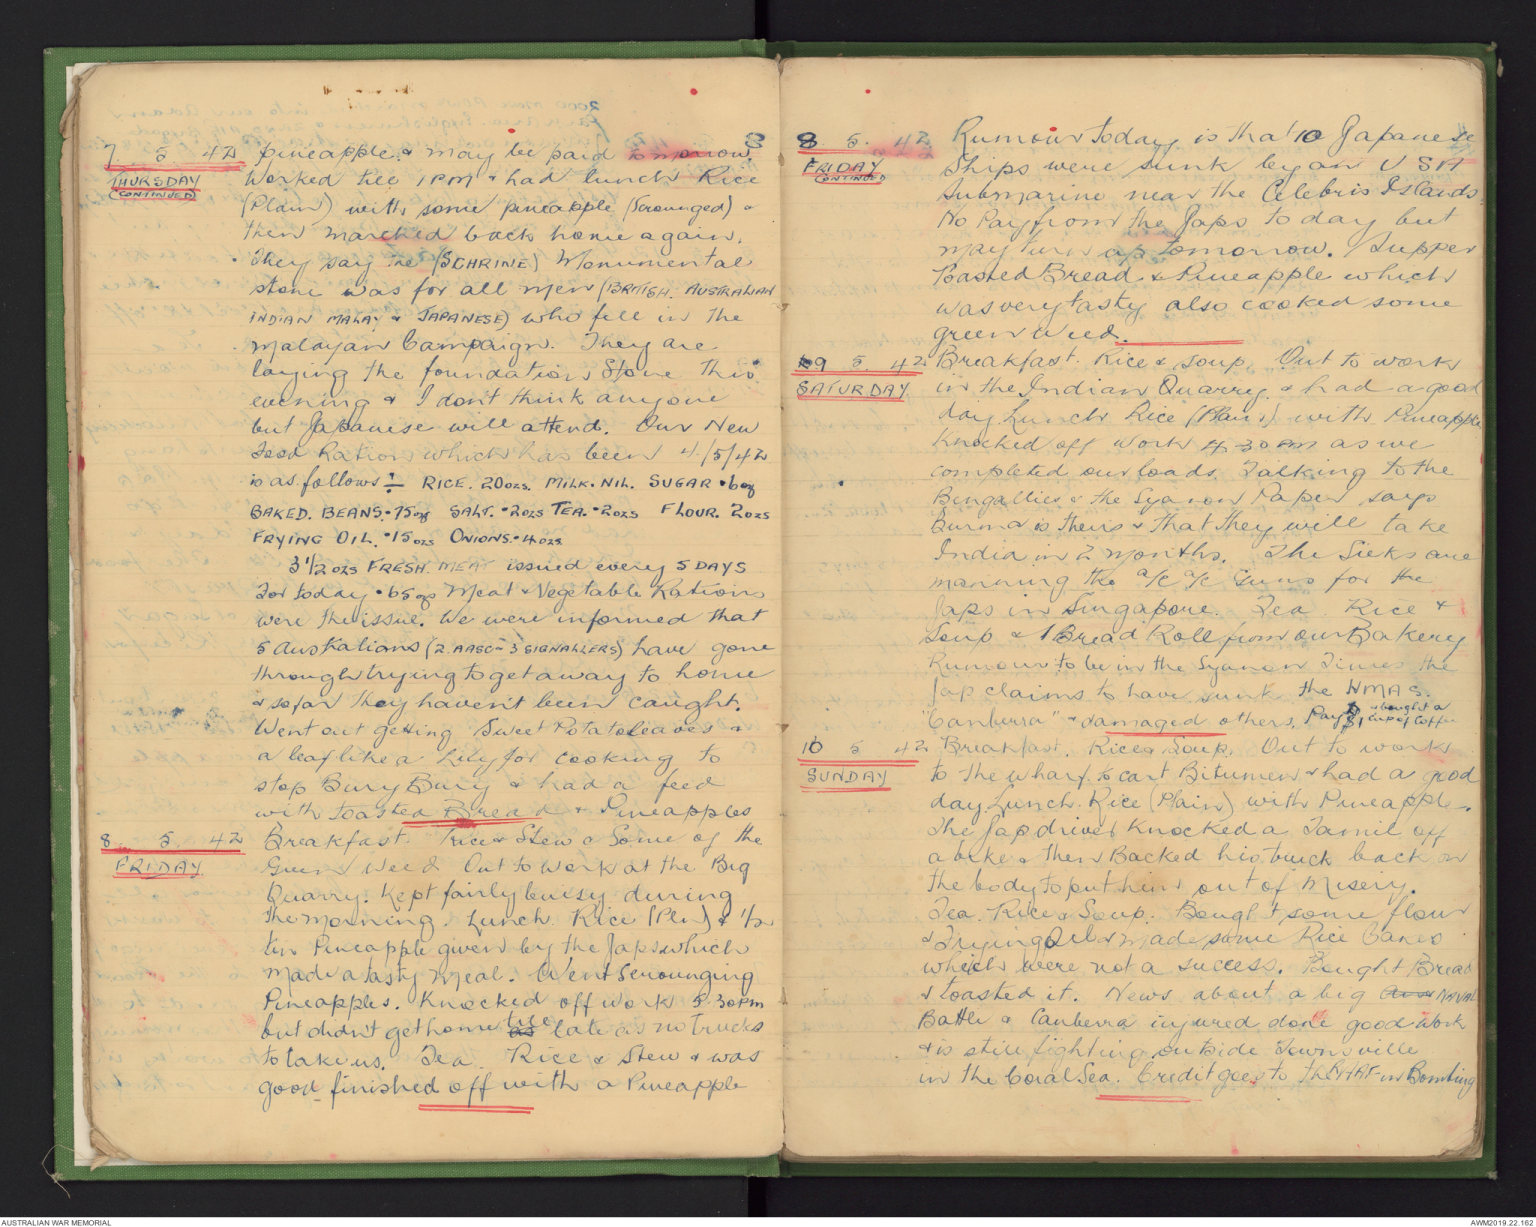 7 5 42 pineapple & may be paid tomorrow.
THURSDAY
(CONTINUED)
Worked till 1 PM & had lunch Rice
(Plain) with some pineapple (Scrounged) &
then marched back home again.
They say the (SCHRINE) Monumental
stone was for all men (BRITISH. AUSTRALIAN
INDIAN MALAY & JAPANESE) who fell in the
Malayan Campaign. They are
laying the foundation Stone this
evening & I don't think anyone
but Japanese will attend. Our New
Food Ration which has been 4/5/42
is as follows ÷ RICE. 20ozs. MILK. NIL. SUGAR .6oz
BAKED. BEANS. .75oz SALT. .2ozs TEA. .2ozs FLOUR. 2ozs
FRYING OIL. .15ozs ONIONS. .4ozs
3 1/2 ozs FRESH. MEAT issued every 5 DAYS
For today .65ozs Meat & Vegetable Rations
were the issue. We were informed that
5 Australians (2 AASC - 3 SIGNALLERS) have gone
through trying to get away to home
& so far they haven't been caught.
Went out getting Sweet Potato leaves &
a leaf like a Lily for cooking to
stop Bury Bury & had a feed
with toasted Bread & Pineapples
8 5 42 Breakfast. Rice & Stew & Some of the
FRIDAY
Green Weed. Out to work at the Big
Quarry. Kept fairly buisy during
the morning. Lunch. Rice (Pln) & 1/2
tin Pineapple given by the Japs which
made a tasty meal. Went Scrounging
Pineapples. Knocked off work 5 30PM
but didn't get home as till late as no trucks
to take us. Tea. Rice & Stew & was
good finished off with a Pineapple
8 5. 42 Rumour today is that 10 Japanese
FRIDAY
CONTINUED
Ships were sunk by an USA
Submarine near the Celebris Islands.
No Pay from the Japs today but
may turn up tomorrow. Supper
Toasted Bread & Pineapple which
was very tasty also cooked some
green weed.
9 5. 42 Breakfast. Rice & soup. Out to work
SATURDAY
in the Indian Quarry & had a good
day Lunch Rice (Plain) with Pineapple
Knocked off work 4-30 PM as we
completed our loads. Talking to the
Bengallies & the Syanon Paper says
Burma is theirs & that they will take
India in 2 months. The Sieks are
manning the a/c a/c Guns for the
Japs in Singapore. Tea Rice &
Soup & 1 Bread Roll from our Bakery
Rumour to be in the Syanon Times the
Jap claims to have sunk the HMAS.
"Canberra" & damaged others. Pay $1 & bought a cup of Coffee
10 5 42 Breakfast. Rice & Soup. Out to work
SUNDAY
to the wharf to cart Bitumen & had a good
day Lunch. Rice (Plain) with Pineapple.
The Jap driver Knocked a Tamil off
a bike & then Backed his truck back on
the body to put him out of Misery.
Tea. Rice & Soup. Bought some flour
& Frying Oil & made some Rice Cakes
which were not a success. Bought Bread
& toasted it. News about a big NAVAL
Battle & Canberra injured done good work
& is still fighting outside Townsville
in the Coral Sea. Credit goes to the in Bombing
AUSTRALIAN WAR MEMORIAL
AWM2019.22.162